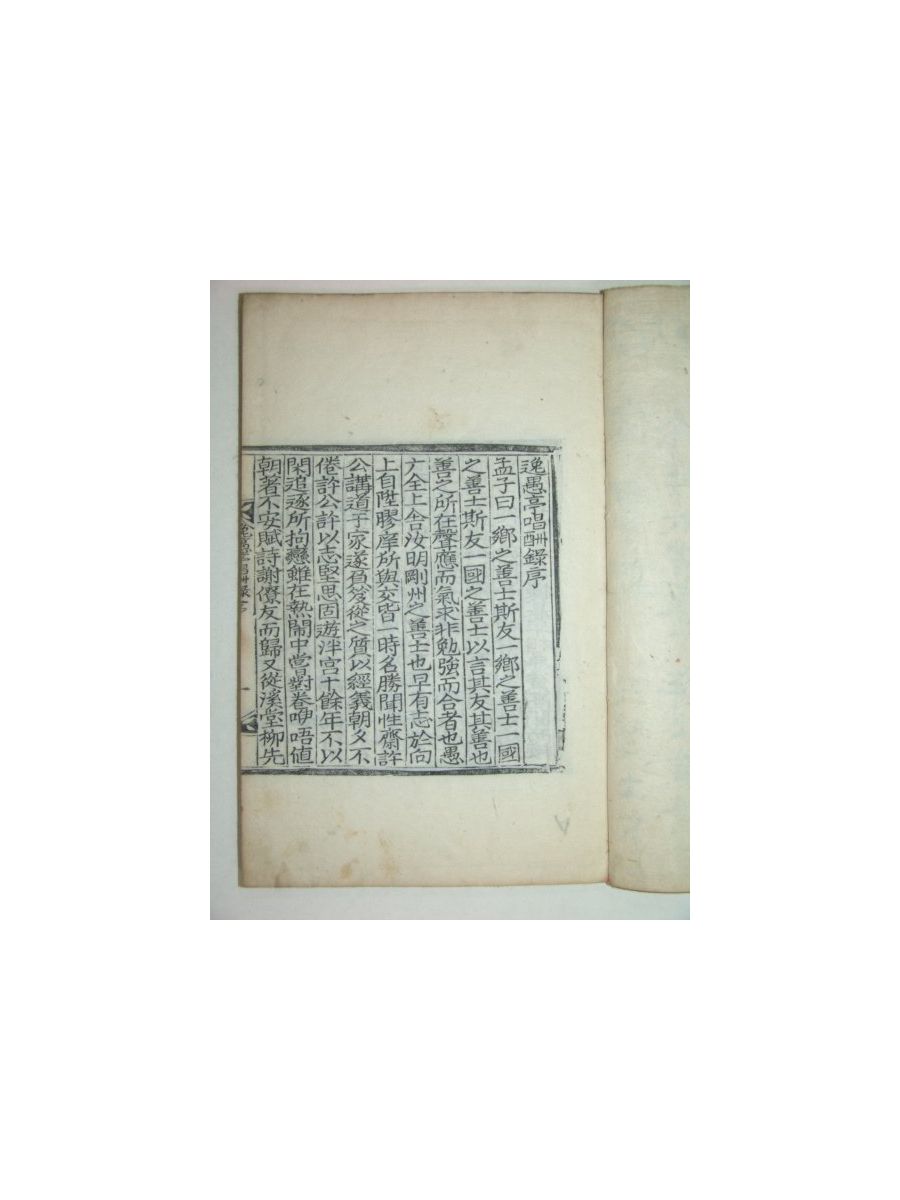 逸愚亭唱酬錄序
孟子曰一鄉之善士斯友一鄉之善士一國
之善士斯友一國之善士以言其友其善也
善之所在聲應而氣求非勉強而合者也愚
广全上舍汝明剛州之善士也早有志於向
上自陞膠庠所與交皆一時名勝聞性齋許
公講道于家遂負笈從之質以經義朝夕不
倦許公許以志堅思固遊泮宮十餘年不以
閑追逐所拘戀雖在熱鬧中嘗對卷咿唔値
朝著不安賦詩謝僚友而歸又從溪堂柳先